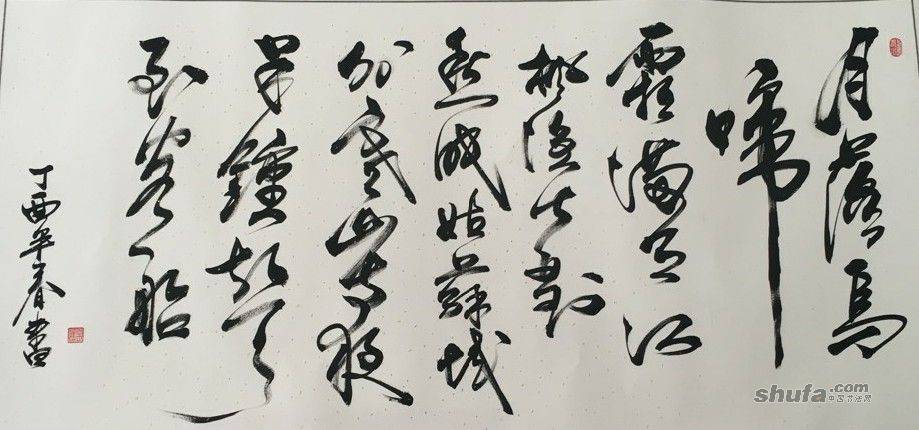 月落烏
啼
霜滿天江
楓漁火對
愁眠姑蘇城
外寒山寺夜
半鍾聲
到客船
丁酉年春書
shufa.com
中国书法网